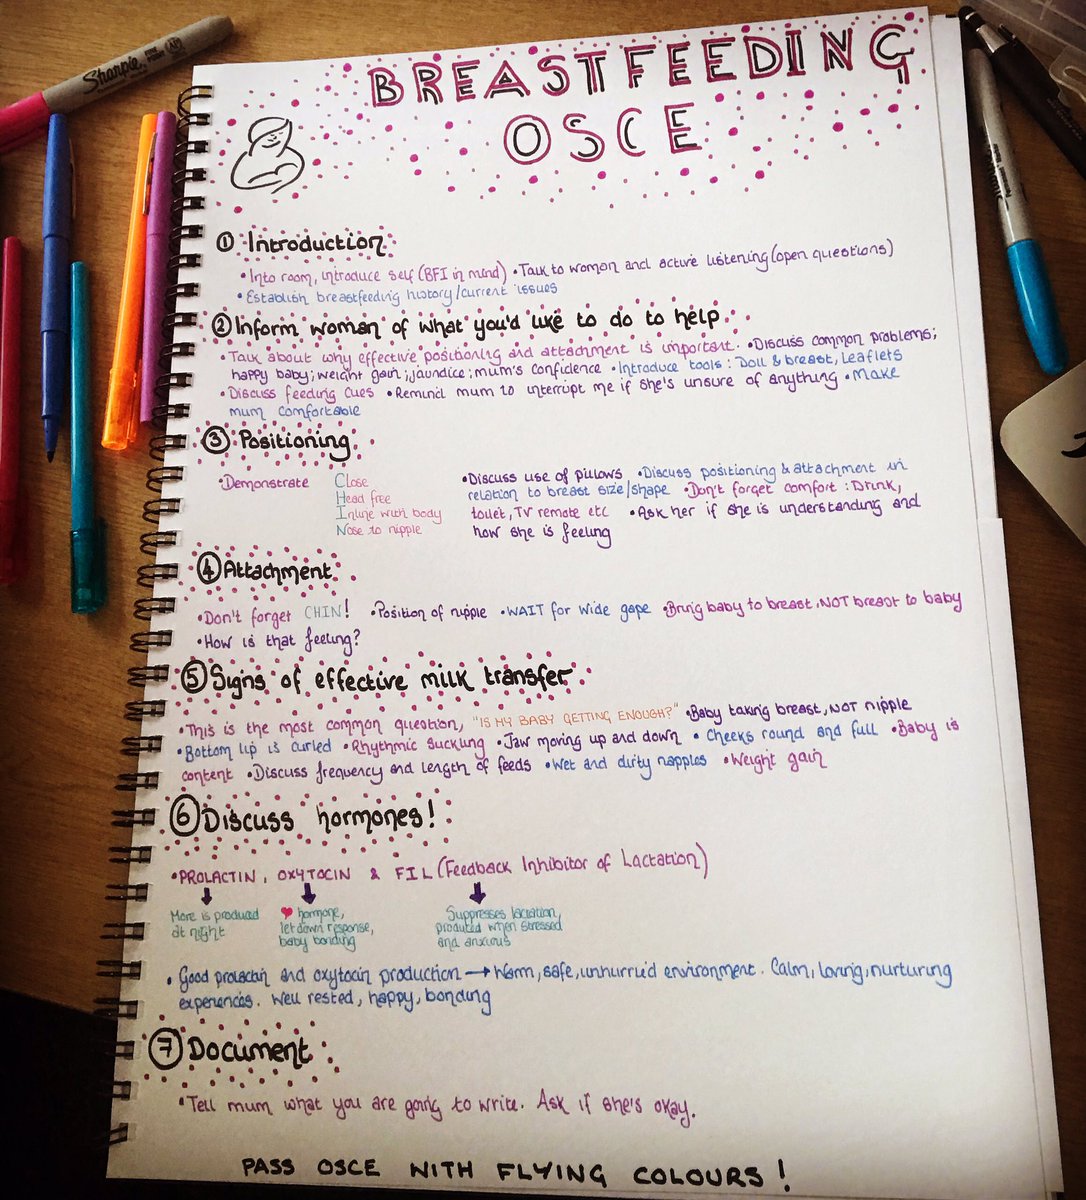 Sharpie
FINE POINT
AP
BREASTFEEDING
OSCE
① Introduction
• Into room, introduce self (BFI in mind) • Talk to woman and active listening (open questions)
• Establish breastfeeding history/current issues
② Inform woman of what you'd like to do to help
• Talk about why effective positioning and attachment is important. • Discuss common problems;
happy baby; weight gain; jaundice; mum's confidence • Introduce tools: Doll & breast, Leaflets
• Discuss feeding cues • Remind mum to interrupt me if she's unsure of anything • Make
mum comfortable
③ Positioning
• Demonstrate
Close
Head free
Inline with body
Nose to nipple
• Discuss use of pillows • Discuss positioning & attachment in
relation to breast size/shape • Don't forget comfort: Drink,
toilet, TV remote etc • Ask her if she is understanding and
how she is feeling
④ Attachment
• Don't forget CHIN! • Position of nipple • WAIT for wide gape • Bring baby to breast, NOT breast to baby
• How is that feeling?
⑤ Signs of effective milk transfer
• This is the most common question, "IS MY BABY GETTING ENOUGH?" • Baby taking breast, NOT nipple
• Bottom lip is curled • Rhythmic suckling • Jaw moving up and down • Cheeks round and full • Baby is
content • Discuss frequency and length of feeds • Wet and dirty nappies • Weight gain
⑥ Discuss hormones!
• PROLACTIN, OXYTOCIN & FIL (Feedback Inhibitor of Lactation)
More is produced
at night
♥ hormone,
let down response,
baby bonding
Suppresses lactation,
produced when stressed
and anxious
• Good prolactin and oxytocin production → Warm, safe, unhurried environment. Calm, loving, nurturing
experiences. Well rested, happy, bonding
⑦ Document
• Tell mum what you are going to write. Ask if she's okay.
PASS OSCE WITH FLYING COLOURS!